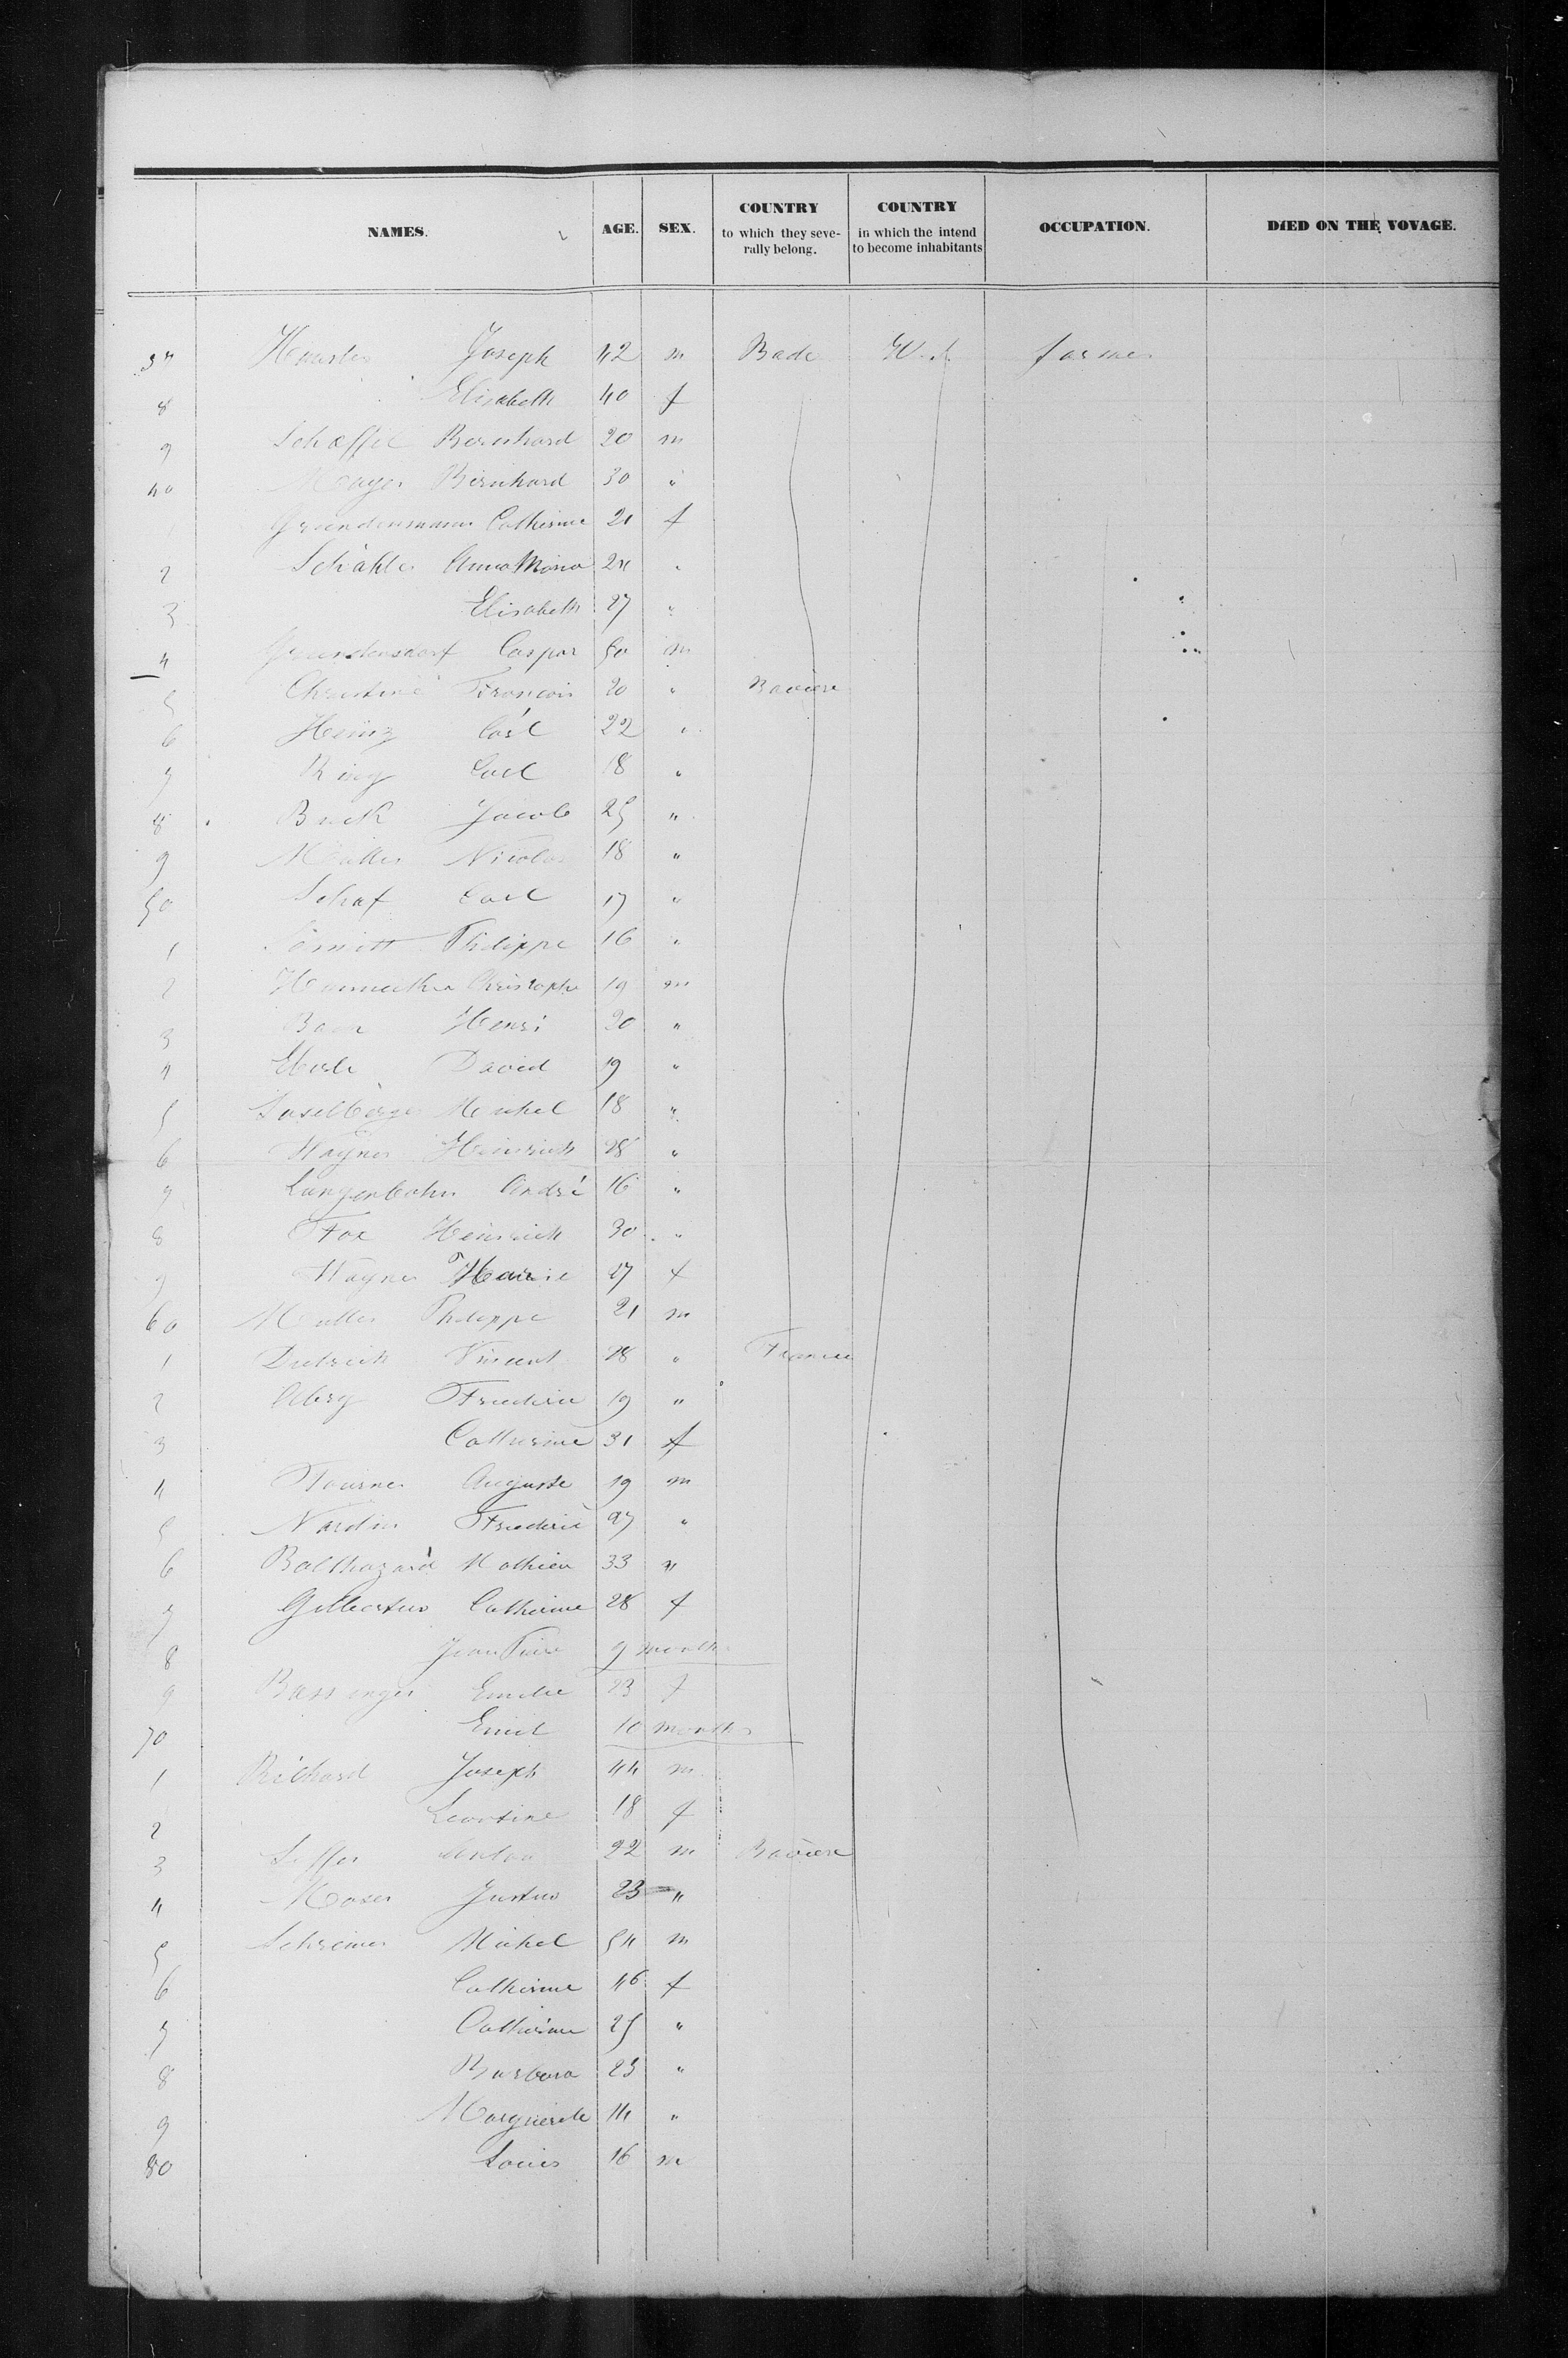 NAMES. AGE. SEX. COUNTRY to which they seve- rally belong. COUNTRY in which the intend to become inhabitants OCCUPATION. DIED ON THE VOVAGE.
37 Joseph 42 m Bade farmer
8 Elisabeth 40 f
9 Bernhard 20 m
40 Mayer Bernhard 30 "
Catherine 21 f
2 Anna Maria 24 "
3 Elisabeth 27 "
4 Caspar 50 m
5 Christine Francois 20 " Baviere
6 Heinz Carl 22 "
7 Ring Carl 18 "
8 Buck Jacob 25 "
9 Muller Nicolas 18 "
50 Schaf Carl 17 "
1 Philippe 16 "
2 Christophe 19 m
3 Baer Henri 20 "
4 Eberle David 19 "
5 Michel 18 "
6 Wagner Heinrich 28 "
7 Langenbahn André 16 "
8 Fox Heinrich 30 "
9 Wagner 27 f
60 Muller Philippe 21 m
1 Dietrich Vincent 28 " France
2 Frederic 19 "
3 Catherine 31 f
4 Auguste 19 m
5 Nardin Frederic 27 "
6 Balthazard Mathieu 33 "
7 Gilbertus Catherine 28 f
8 Jean Piere 9 months
9 Bassinger Emilie 23 f
70 Emil 10 months
1 Richard Joseph 44 m
2 Leontine 18 f
3 Anton 22 m Baviere
4 Moser Justus 23 "
5 Schreiner Michel 54 m
6 Catherine 46 f
7 Catherine 25 "
8 Barbara 23 "
9 Marguerite 14 "
80 Louis 16 m